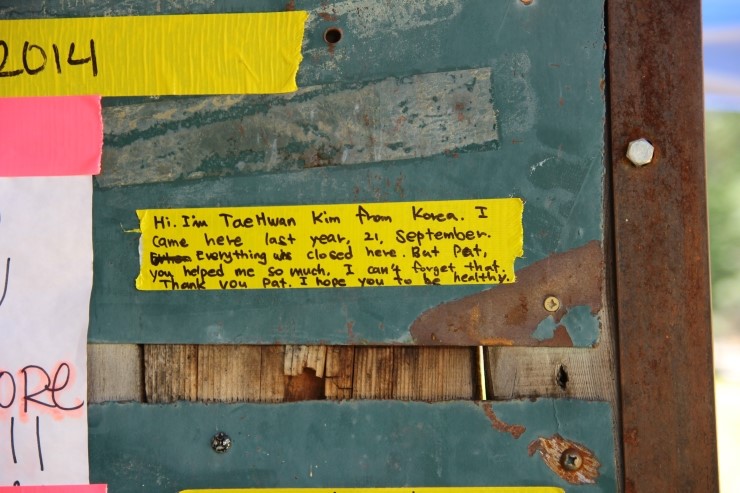 2014
Hi. I'm TaeHwan Kim from Korea. I
came here last year, 21, September.
Everything was closed here. But Pat,
you helped me so much. I can't forget that.
Thank you Pat. I hope you to be healthy.
ORe
!!